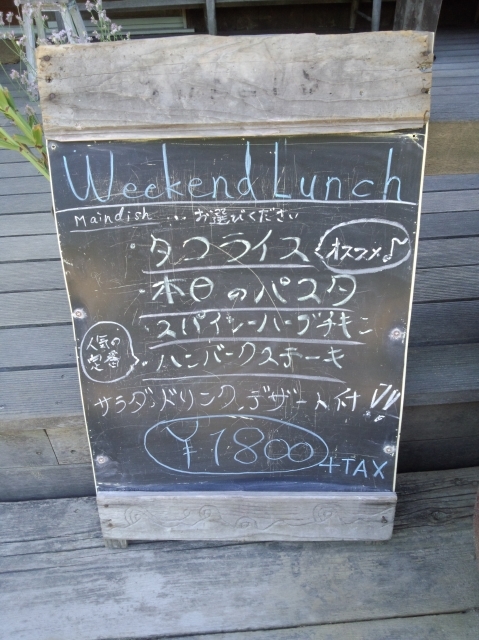 Weekend Lunch
Maindish ... お選びください
・タコライス オススメ♪
・本日のパスタ
・スパイシーハーブチキン
人気の定番 ・ハンバーグステーキ
サラダ、ドリンク、デザート付!!
¥1800 +TAX